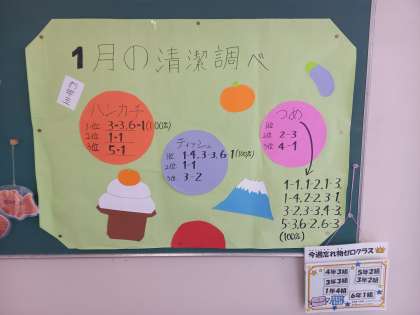 1月の清潔調べ
ハンカチ
1位 3-3,6-1(100%)
2位 1-1
3位 5-1
ティッシュ
1位 1-4,3-3,6-1(100%)
2位 1-1
3位 3-2
つめ
1位
2位 2-3
3位 4-1
1-1,1-2,1-3,
1-4,2-2,3-1,
3-2,3-3,4-3,
5-3,6-2,6-3
(100%)
今週忘れ物ゼロクラス
4年3組
5年2組
3年3組
3年2組
1年4組
6年1組